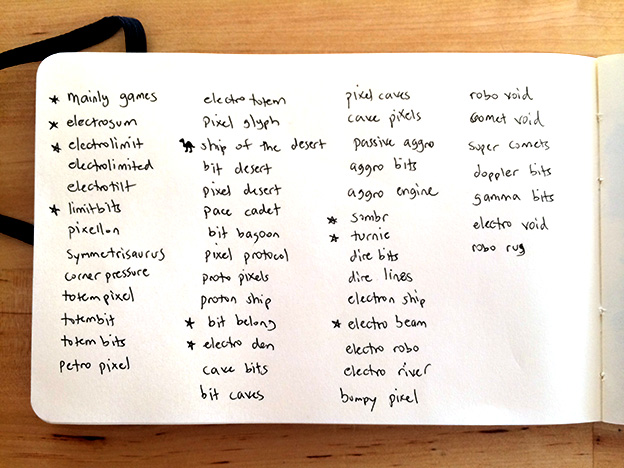 ★ mainly games
★ electrogum
★ electrolimit
electrolimited
electrotilt
★ limitbits
pixellon
symmetrisaurus
corner pressure
totempixel
totembit
totem bits
petro pixel
electro totem
pixel glyph
ship of the desert
bit desert
pixel desert
pace cadet
bit bagoon
pixel protocol
proto pixels
proton ship
★ bit belong
★ electro den
cave bits
bit caves
pixel caves
cave pixels
passive aggro
aggro bits
aggro engine
★ sombr
★ turnie
dire bits
dire lines
electron ship
★ electro beam
electro robo
electro river
bumpy pixel
robo void
comet void
super comets
doppler bits
gamma bits
electro void
robo rug